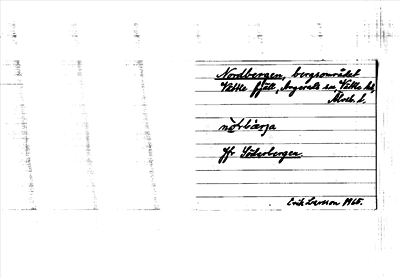 Nordbergen, bergsområdet
Vättle fjäll, Angereds sn, Vättle hd,
Älvsb. l.
nòrbærja
Jfr Söderbergen.
Erik Larsson 1965.